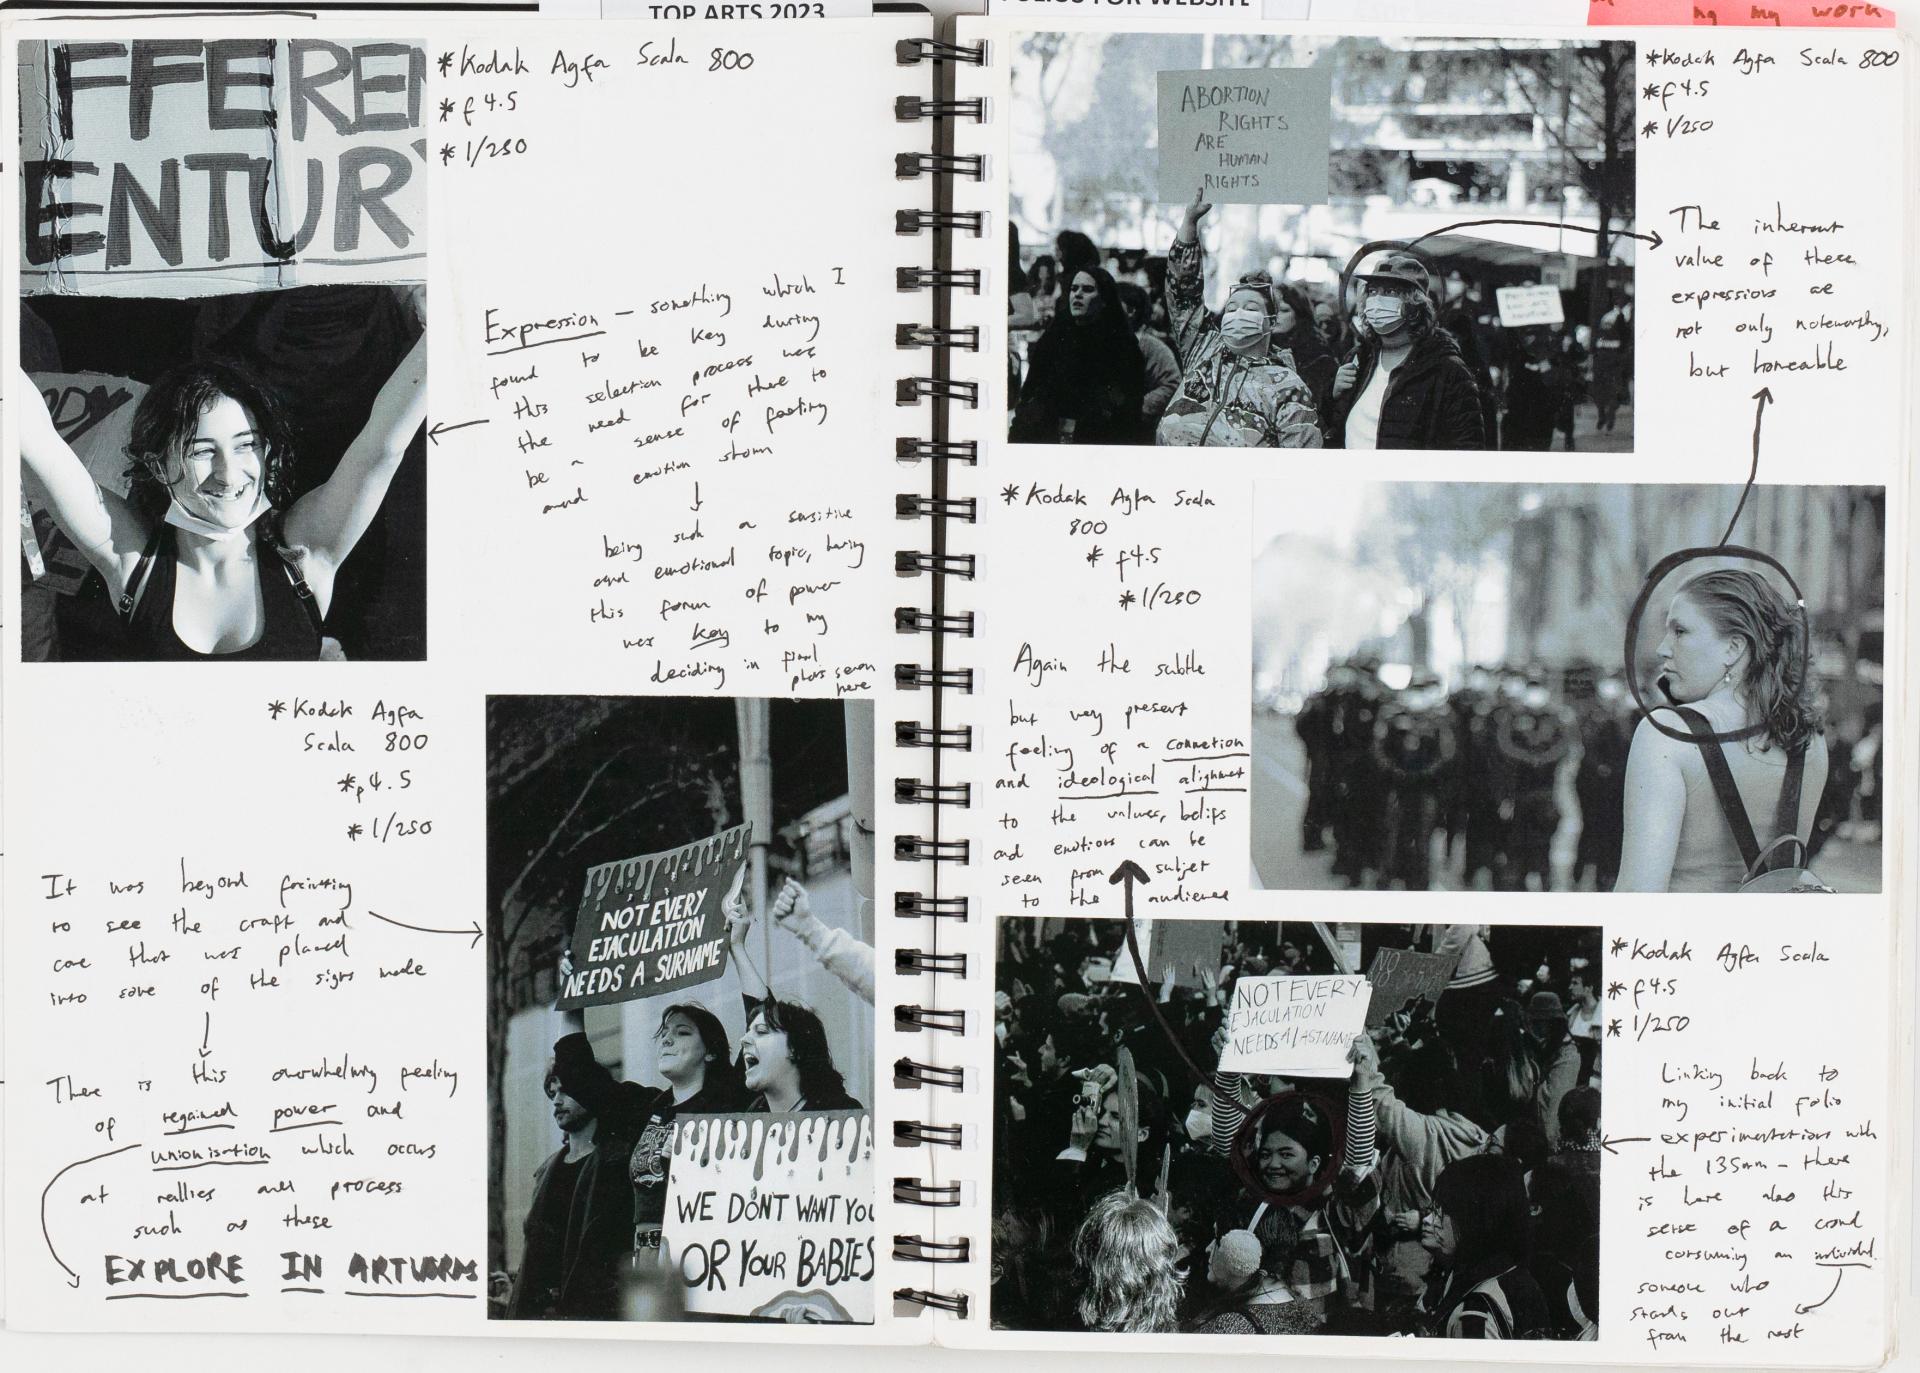 TOP ARTS 2023
FOLIOS FOR WEBSITE
my work
FFEREN
ENTURY
*Kodak Agfa Scala 800
*f4.5
*1/250
Expression – something which I
found to be key during
this selection process was
the need for there to
be a sense of feeling
and emotion shown
being such a sensitive
and emotional topic, having
this form of power
was key to my
deciding in final
photos seen
here
*Kodak Agfa
Scala 800
*f4.5
*1/250
It was beyond
to see the craft and
care that was placed
into some of the signs made
There is this overwhelming feeling
of regained power and
unionisation which occurs
at rallies and process
such as these
EXPLORE IN ARTWORKS
NOT EVERY
EJACULATION
NEEDS A SURNAME
WE DON'T WANT YOU
OR YOUR BABIES
ABORTION
RIGHTS
ARE
HUMAN
RIGHTS
*Kodak Agfa Scala 800
*f4.5
*1/250
The inherent
value of these
expressions are
not only noteworthy,
but honeable
*Kodak Agfa Scala
800
*f4.5
*1/250
Again the subtle
but very present
feeling of a connetion
and ideological alignmet
to the values, belifs
and emotions can be
seen from subjet
to the audience
NOT EVERY
EJACULATION
NEEDS A LASTNAME
NO
*Kodak Agfa Scala
*f4.5
*1/250
Linking back to
my initial folio
experimentations with
the 135mm – there
is here also this
sense of a crowd
consuming an individul.
someone who
stands out
from the rest